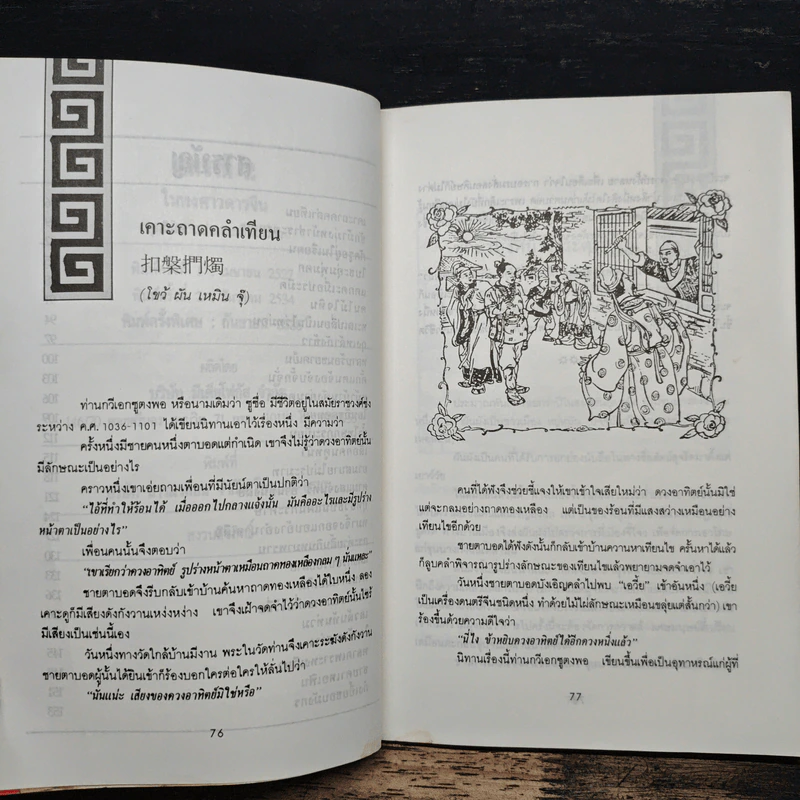 เคาะถาดคลำเทียน
扣槃捫燭
(โขว้ ผัน เหมิน จุ๊)
ท่านกวีเอกซูตงพอ หรือนามเดิมว่า ซูซื่อ มีชีวิตอยู่ในสมัยราชวงศ์ซ่ง
ระหว่าง ค.ศ. 1036-1101 ได้เขียนนิทานเอาไว้เรื่องหนึ่ง มีความว่า
ครั้งหนึ่งมีชายคนหนึ่งตาบอดแต่กำเนิด เขาจึงไม่รู้ว่าดวงอาทิตย์นั้น
มีลักษณะเป็นอย่างไร
คราวหนึ่งเขาเอ่ยถามเพื่อนที่มีนัยน์ตาเป็นปกติว่า
“ไอ้ที่ทำให้ร้อนได้ เมื่อออกไปกลางแจ้งนั้น มันคืออะไรและมีรูปร่าง
หน้าตาเป็นอย่างไร”
เพื่อนคนนั้นจึงตอบว่า
“เขาเรียกว่าดวงอาทิตย์ รูปร่างหน้าตาเหมือนถาดทองเหลืองกลม ๆ นั่นแหละ”
ชายตาบอดจึงรีบกลับเข้าบ้านค้นหาถาดทองเหลืองได้ใบหนึ่ง ลอง
เคาะดูก็มีเสียงดังกังวานเหง่งหง่าง เขาจึงเฝ้าจดจำไว้ว่าดวงอาทิตย์นั้นไซร้
มีเสียงเป็นเช่นนี้เอง
วันหนึ่งทางวัดใกล้บ้านมีงาน พระในวัดท่านจึงเคาะระฆังดังกังวาน
ชายตาบอดผู้นั้นได้ยินเข้าก็ร้องบอกใครต่อใครให้ลั่นไปว่า
“นั่นแน่ะ เสียงของดวงอาทิตย์มิใช่หรือ”
76
คนที่ได้ฟังจึงช่วยชี้แจงให้เขาเข้าใจเสียใหม่ว่า ดวงอาทิตย์นั้นมิใช่
แต่จะกลมอย่างถาดทองเหลือง แต่เป็นของร้อนที่มีแสงสว่างเหมือนอย่าง
เทียนไขอีกด้วย
ชายตาบอดได้ฟังดังนั้นก็กลับเข้าบ้านควานหาเทียนไข ครั้นหาได้แล้ว
ก็ลูบคลำพิจารณารูปร่างลักษณะของเทียนไขแล้วพยายามจดจำเอาไว้
วันหนึ่งชายตาบอดบังเอิญคลำไปพบ “เอวี้ย” เข้าอันหนึ่ง (เอวี้ย
เป็นเครื่องดนตรีจีนชนิดหนึ่ง ทำด้วยไม้ไผ่ลักษณะเหมือนขลุ่ยแต่สั้นกว่า) เขา
ร้องขึ้นด้วยความดีใจว่า
“นี่ไง ข้าหยิบดวงอาทิตย์ได้อีกดวงหนึ่งแล้ว”
นิทานเรื่องนี้ท่านกวีเอกซูตงพอ เขียนขึ้นเพื่อเป็นอุทาหรณ์แก่ผู้ที่
77